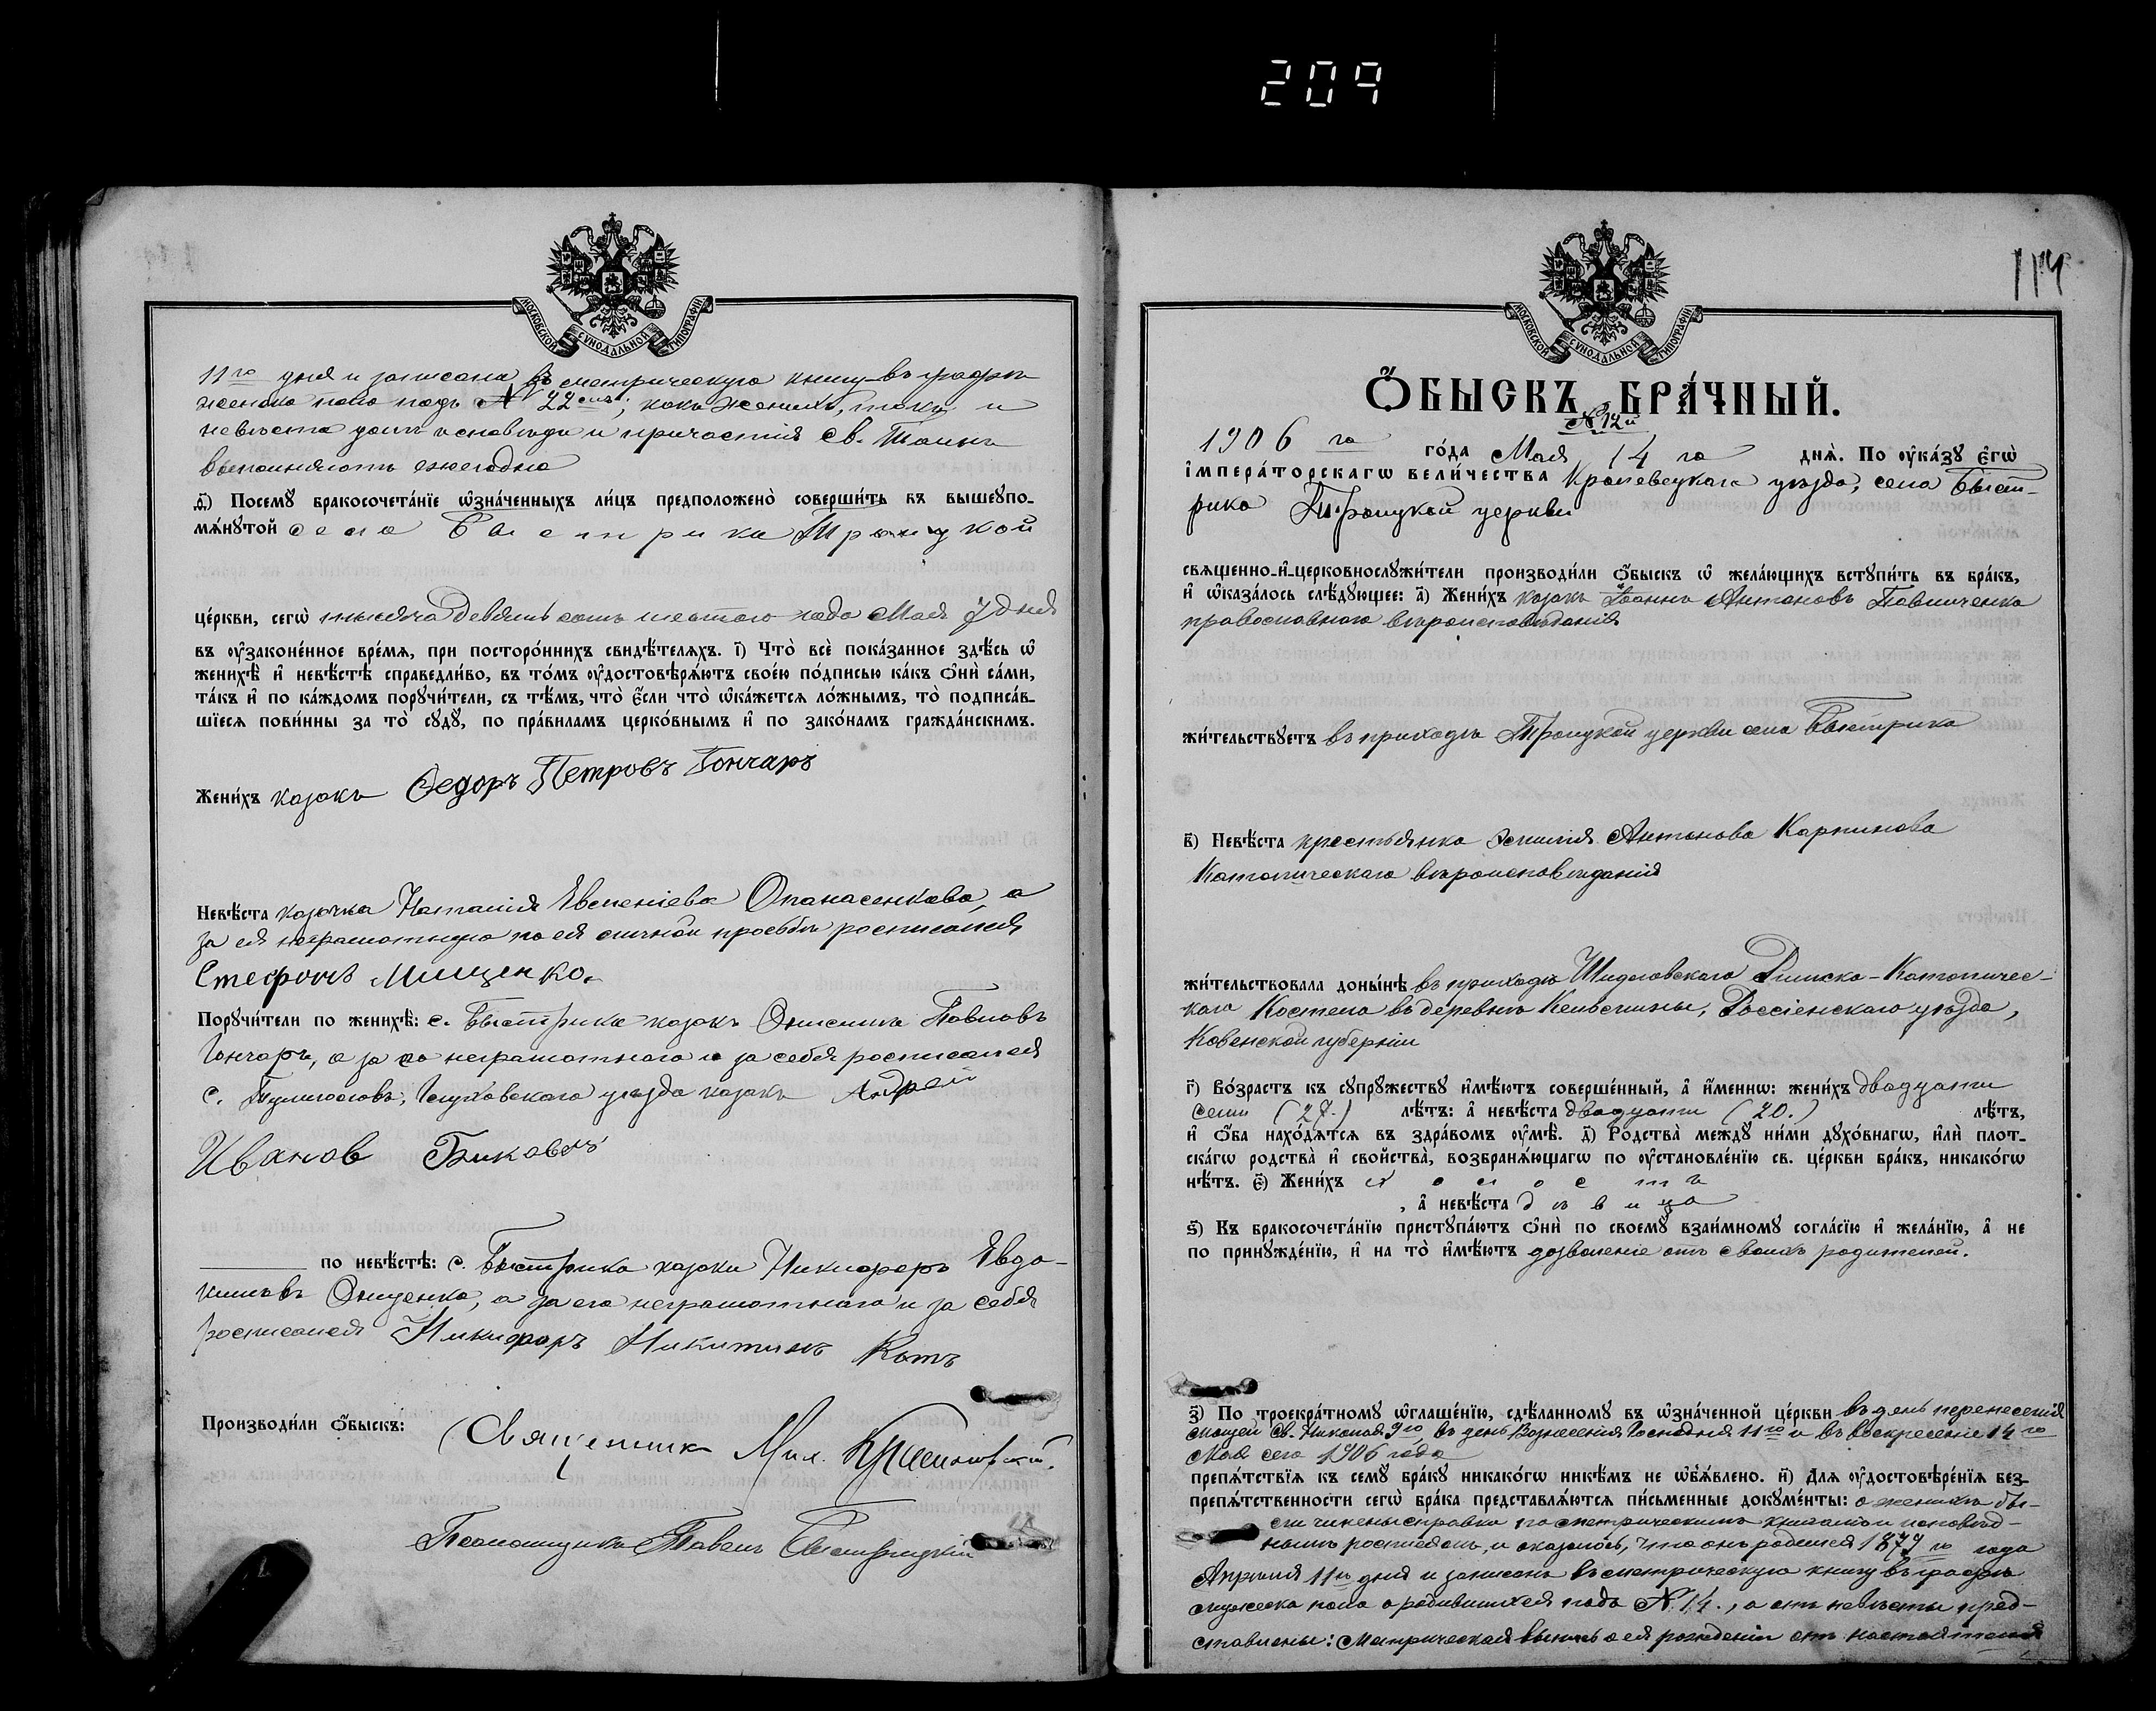 209
МОСКОВСКОЙ СѴНОДАЛЬНОЙ ТИПОГРАФІИ
11го дня и записана въ метрическую книгу въ графѣ
женска пола подъ № 22мъ; какъ женихъ, такъ и
невѣста долгъ исповѣди и причастія св. Таинъ
выполняютъ ежегодно
ѳ҃) Посемꙋ бракосочета́нїе ѡзна́ченныхъ ли́цъ предположено̀ соверши́ть въ вышеꙋпо-
мѧ́нꙋтой села Быстрика Троицкой
це́ркви, сегѡ̀ тысяча девятьсотъ шестого года Мая 7 дня
въ ᲂу҆законе́нное вре́мѧ, при посторо́ннихъ свидѣ́телѧхъ. і҃) Что̀ всѐ пока́занное здѣ́сь ѡ҆
женихѣ̀ и҆ невѣ́стѣ справедли́во, въ то́мъ ᲂу҆достовѣрѧ́ютъ свое́ю по́дписью ка́къ ѻ҆нѝ са́ми,
та́къ и҆ по ка́ждомъ порꙋчи́тели, съ тѣ́мъ, что̀ є҆́сли что̀ ѡ҆ка́жетсѧ ло́жнымъ, то̀ подписа́в-
шїесѧ пови́нны за то̀ сꙋдꙋ̀, по пра́виламъ церко́внымъ и҆ по зако́намъ гражда́нскимъ.
Жени́хъ казакъ Ѳедоръ Петровъ Гончаръ
Невѣ́ста казачка Наталія Евгеніева Опанасенкова, а
за ея неграмотную по ея личной просьбѣ росписался
Стефанъ Мищенко.
Порꙋчи́тели по женихѣ̀: с. Быстрика казакъ Онисимъ Павловъ
Гончаръ, а за его неграмотнаго и за себя росписался
с. Тулиголовъ, Глуховскаго уѣзда казакъ Андрей
Иванов Биковецъ
по невѣ́стѣ: с. Быстрика казаки Никифоръ Евдо-
кимовъ Онищенко, а за его неграмотнаго и за себя
росписался Никифоръ Никитинъ Котъ
Производи́ли ѻ҆́быскъ: Священникъ Мих.
Псаломщикъ Павелъ Быстрицкій
114
МОСКОВСКОЙ СѴНОДАЛЬНОЙ ТИПОГРАФІИ
Ѻ҆́БЫСКЪ БРА́ЧНЫЙ.
№ 12й
1906 го го́да Мая 14 го днѧ̀. По ᲂу҆ка́зꙋ є҆гѡ̀
і҆мпера́торскагѡ вели́чества Кролевецкаго уѣзда, села Быст-
рика Троицкой церкви
свѧщенно-и҆-церковнослꙋжи́тели производи́ли ѻ҆́быскъ ѡ҆ жела́ющихъ встꙋпи́ть въ бра́къ,
и҆ ѡ҆каза́лось слѣ́дꙋющее: а҃) Жени́хъ казакъ Іоаннъ Антоновъ Павличенко
православнаго вѣроисповѣданія
жи́тельствꙋетъ въ приходѣ Троицкой церкви села Быстрика
в҃) Невѣ́ста крестьянка Эмилія Антонова Карпинова
Католическаго вѣроисповѣданія
жи́тельствовала доны́нѣ въ приходѣ Шидловскаго Римско-Католичес-
каго Костела въ деревнѣ Россіенскаго уѣзда,
Ковенской губерніи
г҃) Во́зрастъ къ сꙋпрꙋ́жествꙋ и҆мѣ́ютъ соверше́нный, а҆ и҆́меннѡ: жени́хъ двадцати
семи (27.) лѣ́тъ: а҆ невѣ́ста двадцати (20.) лѣ́тъ,
и҆ ѻ҆́ба нахо́дѧтсѧ въ здра́вомъ ᲂу҆мѣ̀. д҃) Родства̀ междꙋ̀ ни́ми дꙋхо́внагѡ, и҆лѝ плот-
ска́гѡ родства̀ и҆ сво́йства, возбранѧ́ющагѡ по ᲂу҆становле́нїю св. це́ркви бра́къ, никако́гѡ
нѣ́тъ. є҃) Жени́хъ холостъ
, а҆ невѣ́ста дѣвица
ѕ҃) Къ бракосочета́нїю пристꙋпа́ютъ ѻ҆нѝ по своемꙋ̀ взаи́мномꙋ согла́сїю и҆ жела́нїю, а҆ не
по принꙋжде́нїю, и҆ на то̀ и҆мѣ́ютъ дозволеніе отъ своихъ родителей.
з҃) По троекра́тномꙋ ѡ҆глаше́нїю, сдѣ́ланномꙋ въ ѡ҆зна́ченной це́ркви въ день перенесенія
мощей св. Николая 9го, въ день Вознесенія Господня 11го и въ воскресеніе 14го
Мая сего 1906 года
препѧ́тствїѧ къ семꙋ̀ бра́кꙋ никако́гѡ никѣ́мъ не ѡ҆б̾ѧ́влено. и҃) Длѧ ᲂу҆достовѣре́нїѧ без-
препѧ́тственности сегѡ̀ бра́ка представлѧ́ютсѧ пи́сьменные докꙋме́нты: о женихѣ бы-
ли чинены справки по метрическимъ книгамъ и исповѣд-
нымъ росписямъ, и оказалось, что онъ родился 1879 го года
Апрѣля 11го дня и записанъ въ метрическую книгу въ графѣ
мужеска пола о родившихся подъ № 14., а отъ невѣсты пред-
ставлены: Метрическая выпись о ея рожденіи отъ настоятеля